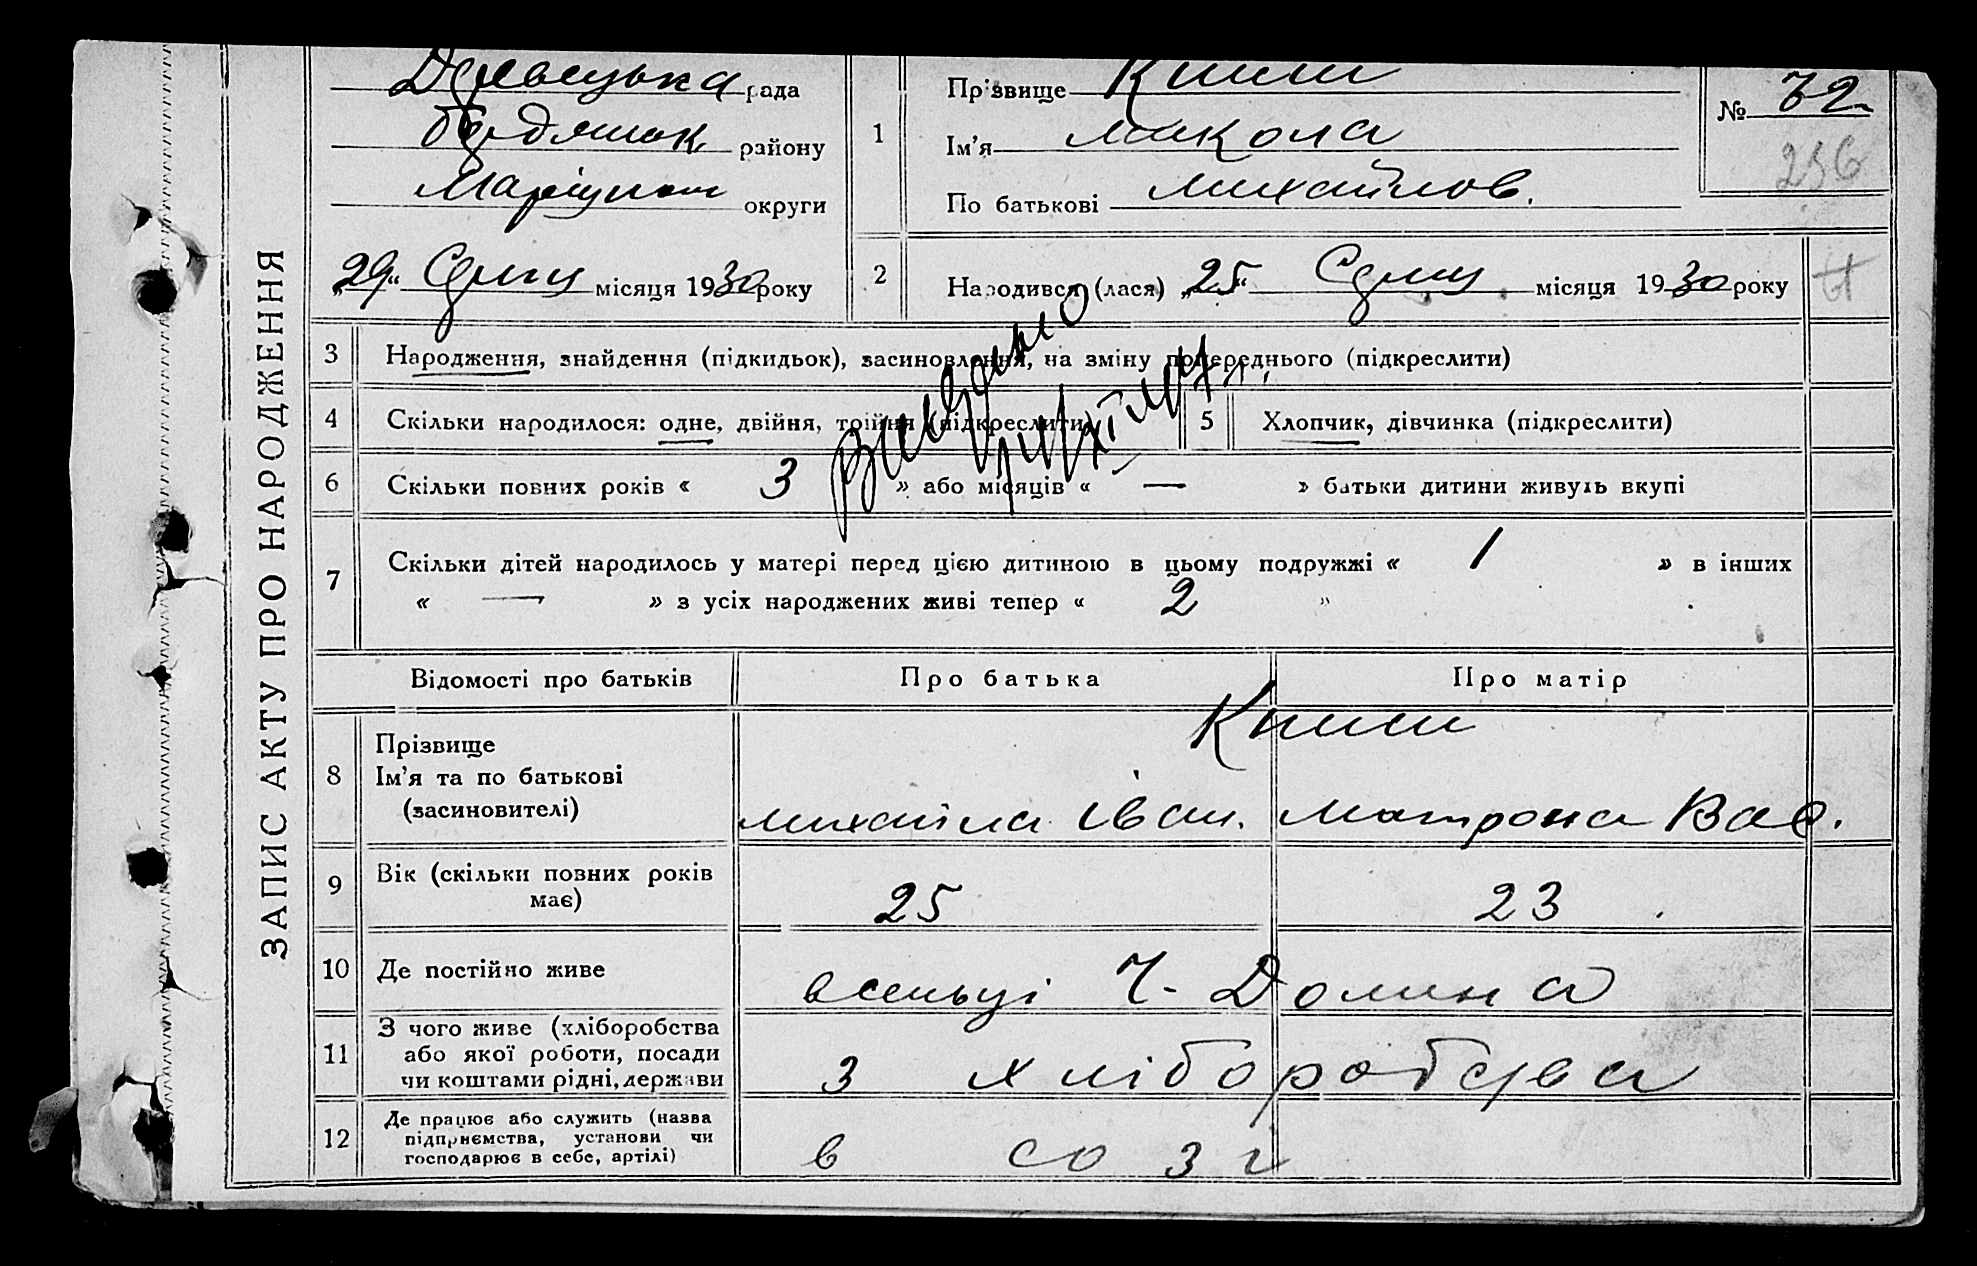 ЗАПИС АКТУ ПРО НАРОДЖЕННЯ
рада
району
округи
„29“ Січня місяця 1930 року
1
Прізвище
Ім’я Микола
По батькові Михайлов.
№ 72
256
2
Народився (лася) „25“ Січня місяця 1930 року
3 Народження, знайдення (підкидьок), засиновлення, на зміну попереднього (підкреслити)
4 Скільки народилося: одне, двійня, трійня (підкреслити)
5 Хлопчик, дівчинка (підкреслити)
6 Скільки повних років « 3 » або місяців « — » батьки дитини живуть вкупі
7 Скільки дітей народилось у матері перед цією дитиною в цьому подружжі « 1 » в інших
« — » з усіх народжених живі тепер « 2 »
Відомості про батьків Про батька Про матір
8 Прізвище
Ім’я та по батькові
(засиновителі)
Михайла Іван. Матрона Вас.
9 Вік (скільки повних років має) 25 23
10 Де постійно живе в сельці Ч-Долина
11 З чого живе (хліборобства
або якої роботи, посади
чи коштами рідні, держави
з хліборобства
12 Де працює або служить (назва
підприємства, установи чи
господарює в себе, артілі)
в созі